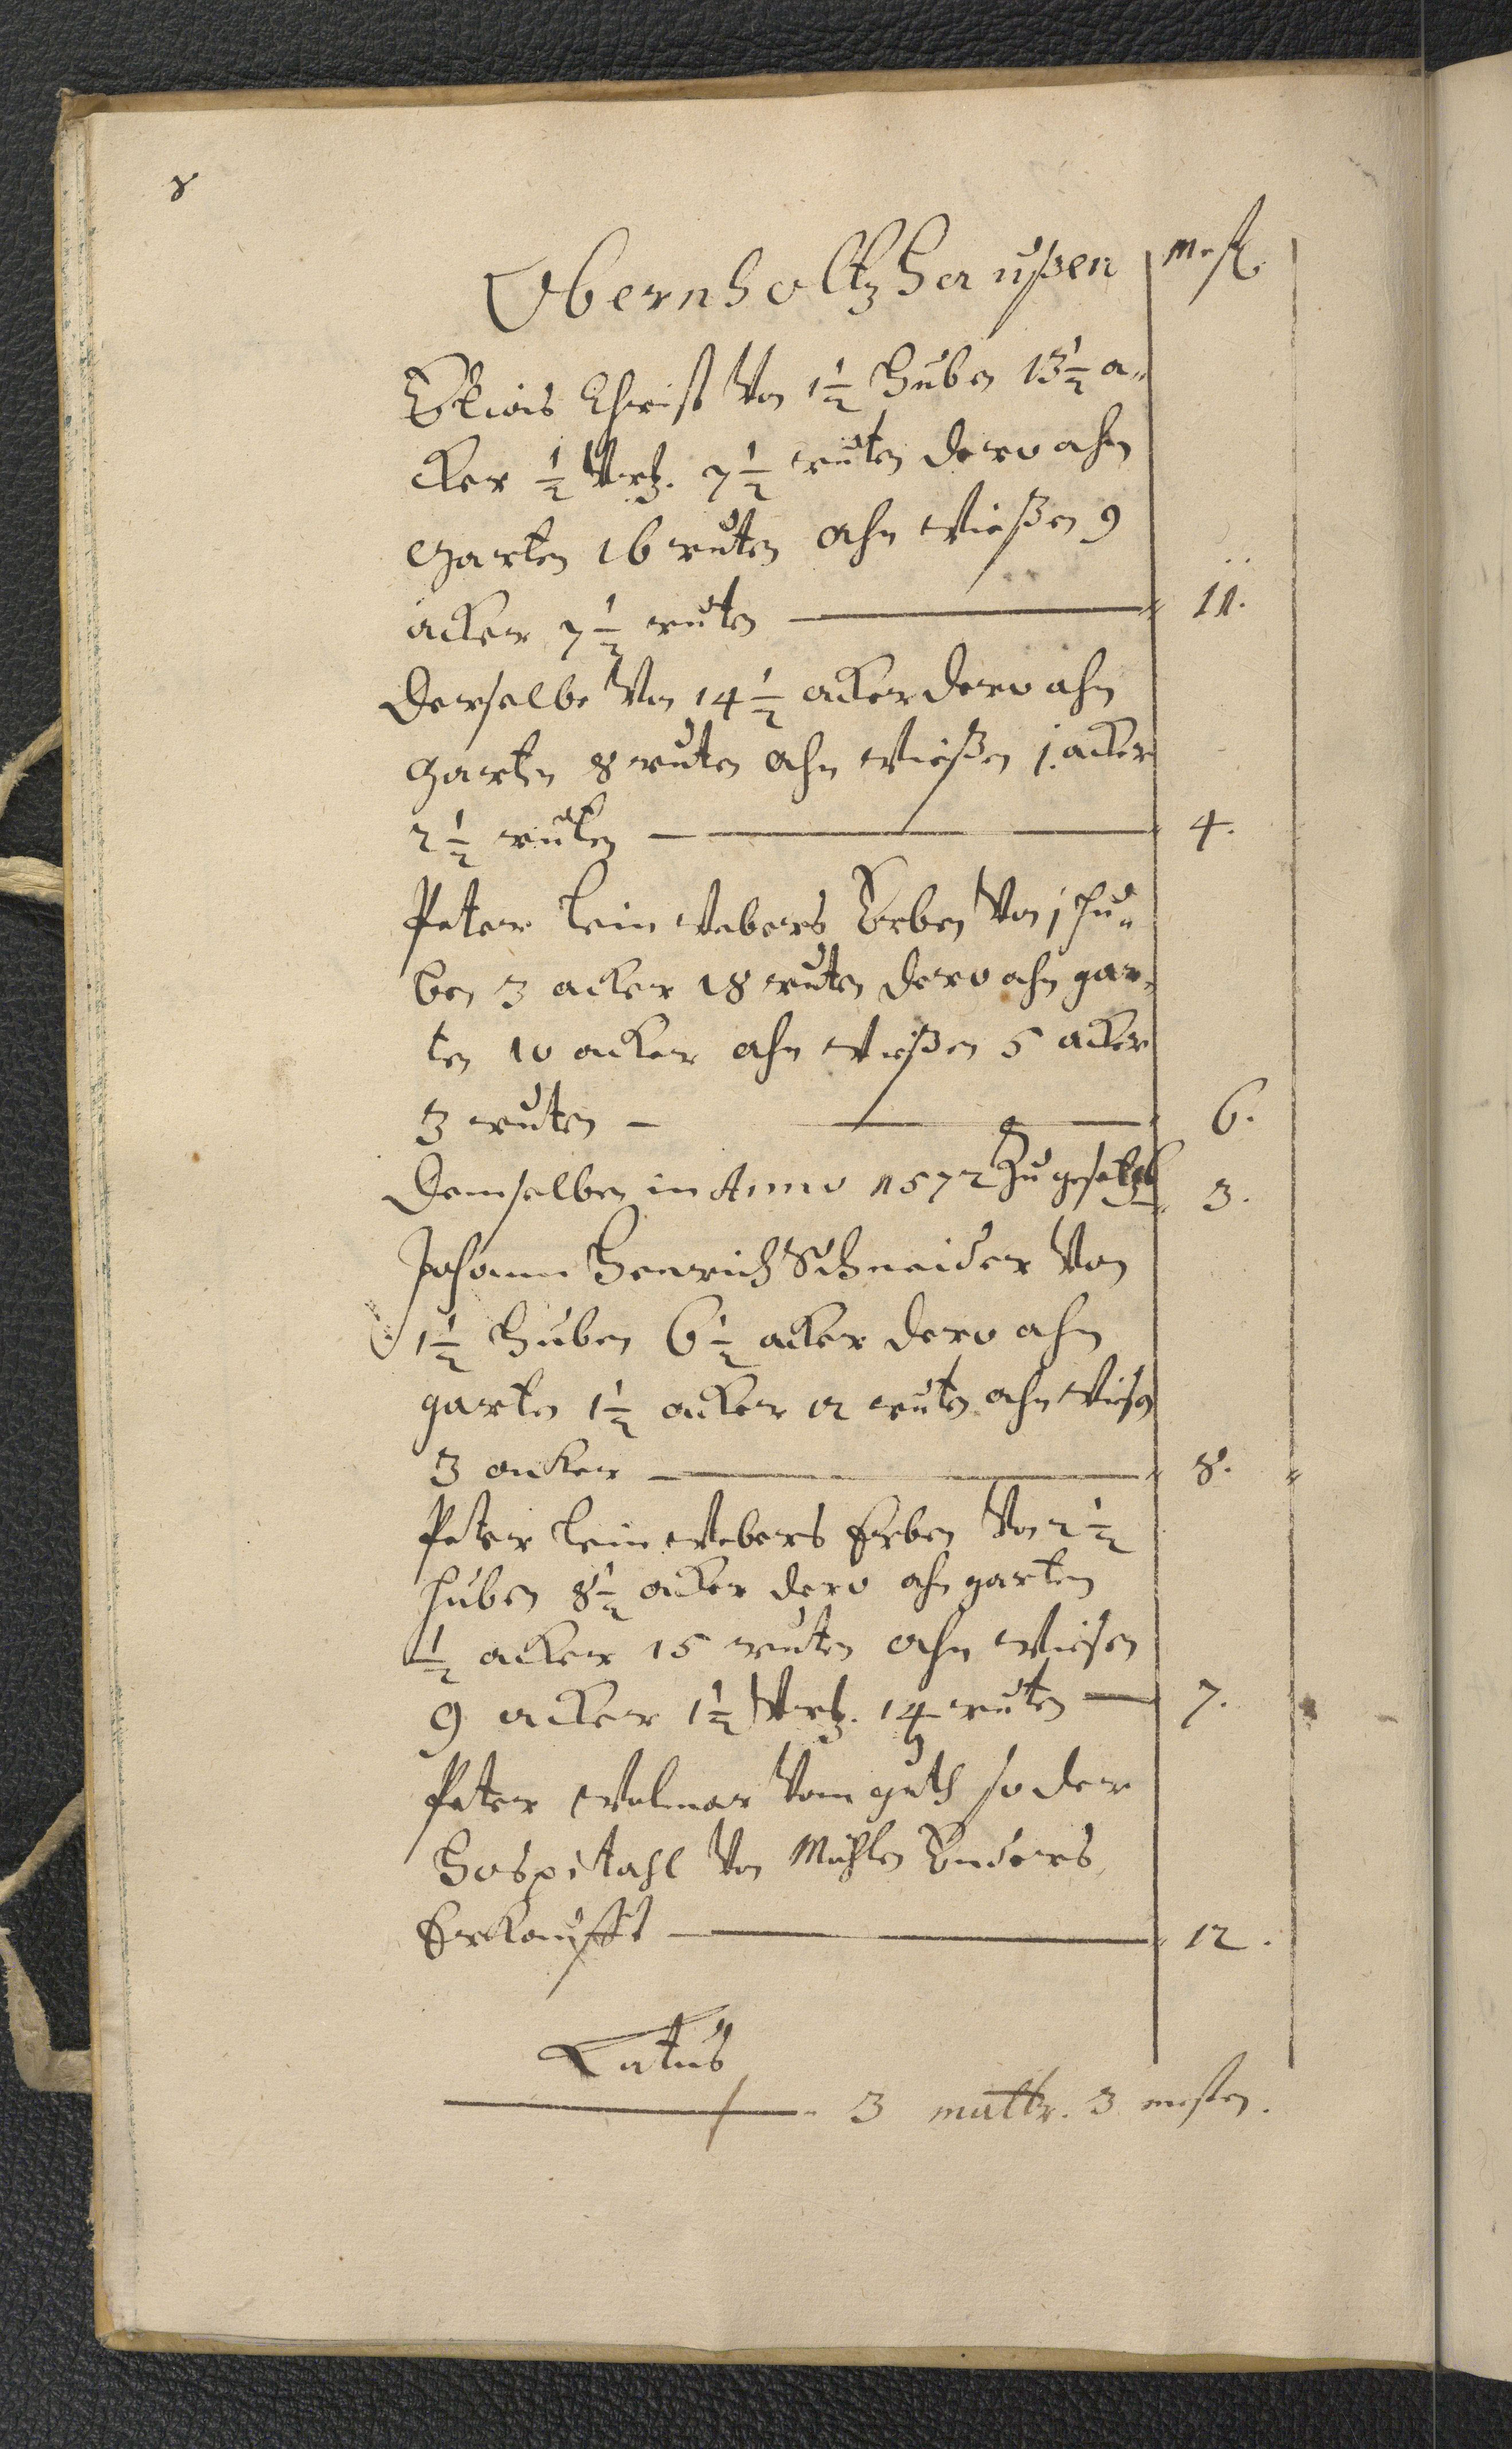 8
Obernholtzhaußen Mest.
Elias Christ Von 1½ Huben 13½ a„
cker ½ Vrtz. 7½ ruten dero ahn
Garten 16 ruten ahn Wießen 9
acker 7½ ruten — 11.
Derselbe Von 14½ acker dero ahn
Garten 8 ruten ahn Wießen j. acker
2½ ruten — 4.
Peter Leinwebers Erben Von j Hu„
ben 3 acker 18 ruten dero ahn gar„
ten 10 acker ahn Wießen 5 acker
3 ruten — 6.
Demselben in Anno 1572 Zugesetzt 3.
Johann Henrich Schneider Von
1½ Huben 6½ acker dero ahn
garten 1½ acker 12 ruten ahn Wiesen
3 acker — 8.
Peter Leinwebers Erben Von 2½
Huben 8½ acker dero ahn garten
½ acker 15 ruten ahn Wiesen
9 acker 1½ Vrtz. 14 ruten — 7.
Peter Volmar Vom guth so der
Hospitahl Von Mühlen Enders
Erkaufft — 12.
Latus
— 3 malltr. 3 mesten.